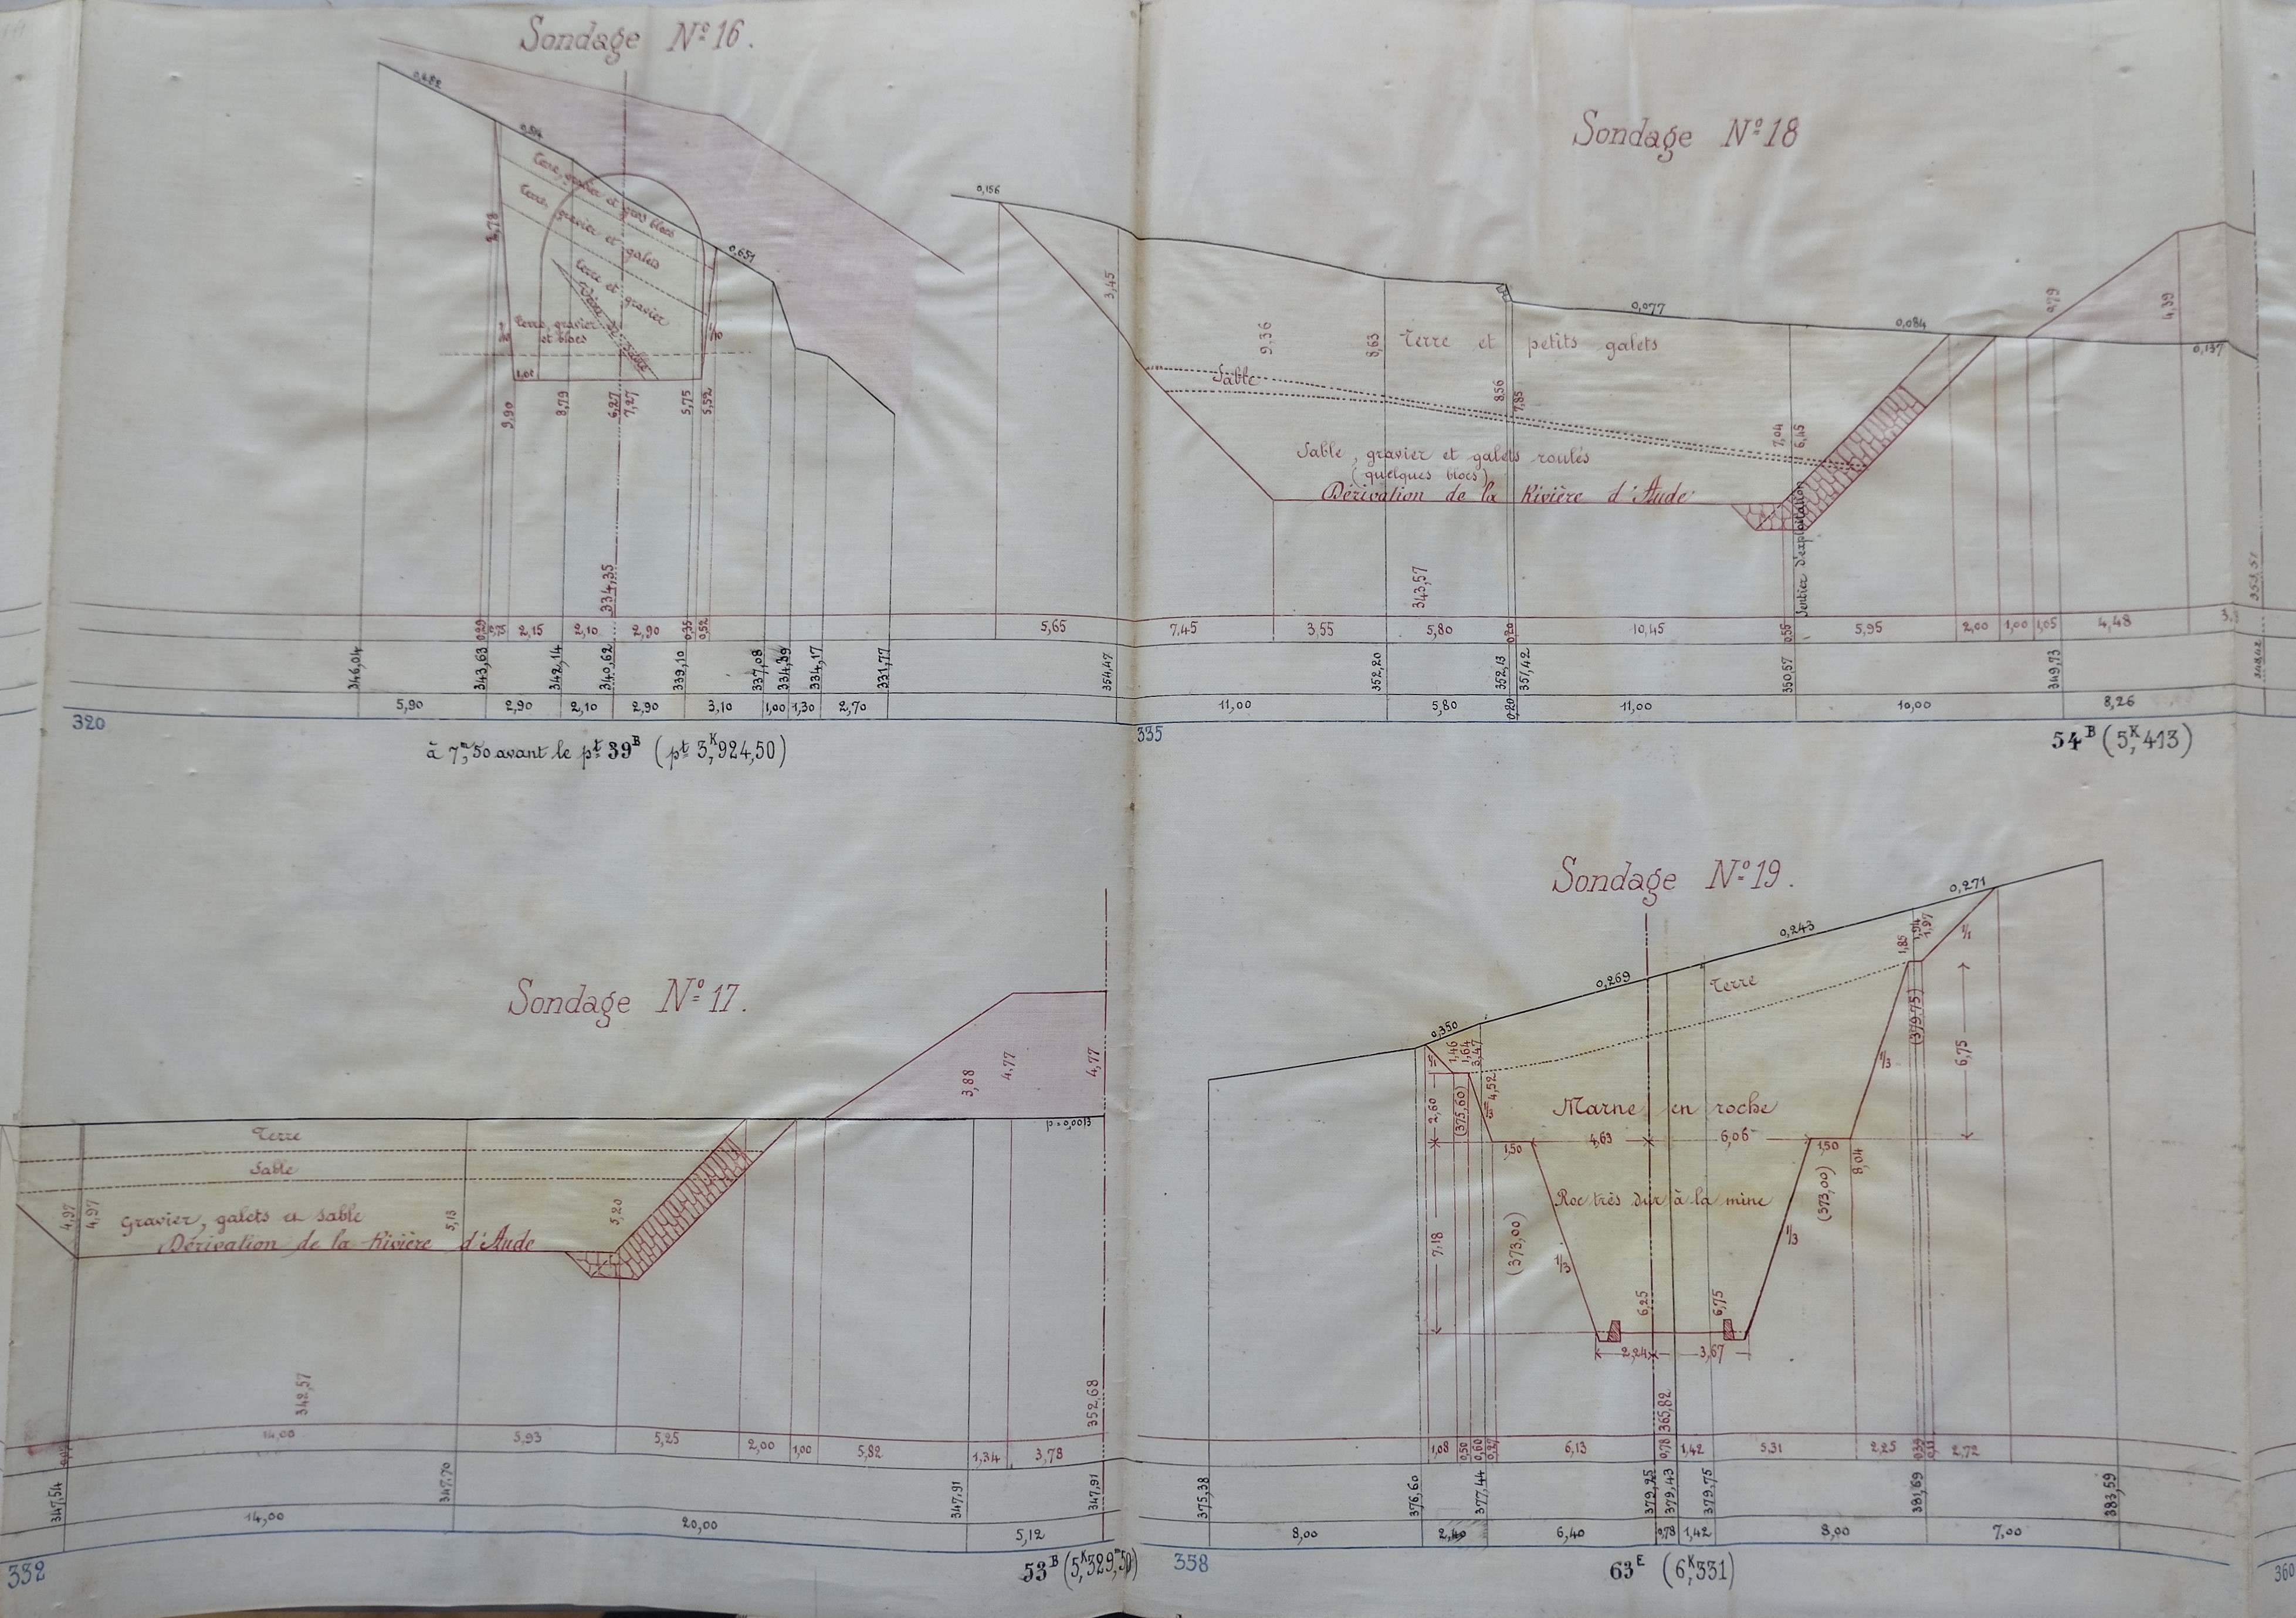 Sondage Nº 16.
0,482
0,514
Terre, gravier et gros blocs
Terre, gravier et galets
Terre et gravier
Veine de sable
Terre, gravier
et blocs
0,651
1,00
9,90
8,79
6,27
7,27
5,75
5,52
334,35
0,29
0,75
2,15
2,10
2,90
0,35
0,52
346,04
343,63
342,14
340,62
339,10
337,08
334,39
334,17
331,77
5,90
2,90
2,10
2,90
3,10
1,00
1,30
2,70
320
à 7,m50 avant le pt 39B (pt 3,K924,50)
Sondage Nº 18
0,156
3,45
9,36
8,63
Terre et petits galets
0,077
0,084
0,79
4,39
0,137
Sable
8,56
7,85
7,04
6,45
Sable, gravier et galets roulés
(quelques blocs)
Dérivation de la Rivière d'Aude
Sentier d'exploitation
343,57
5,65
7,45
3,55
5,80
0,20
10,45
0,55
5,95
2,00
1,00
1,05
4,48
354,47
352,20
352,13
351,42
350,57
349,73
11,00
5,80
0,20
11,00
10,00
8,26
335
54B (5,K413)
Sondage Nº 17.
3,88
4,77
4,77
p=0,0013
Terre
Sable
4,97
4,97
Gravier, galets et sable
5,13
5,20
Dérivation de la Rivière d'Aude
342,57
352,68
14,00
5,93
5,25
2,00
1,00
5,82
1,34
3,78
347,54
347,70
347,91
347,91
14,00
20,00
5,12
332
53B (5,K329,m50)
Sondage Nº 19.
0,350
0,269
0,243
0,271
Terre
1,46
1,64
3,47
1,85
1,94
1,97
1/1
1/1
2,60
(375,60)
4,52
(379,75)
1/3
6,75
Marne en roche
1,50
4,63
6,06
1,50
8,04
Roc très dur à la mine
7,18
(373,00)
1/3
1/3
(373,00)
6,25
6,75
2,24
3,67
365,82
1,08
0,50
0,60
0,27
6,13
0,78
1,42
5,31
2,25
0,39
2,72
375,38
376,60
377,44
379,25
379,43
379,75
381,69
383,59
8,00
2,40
6,40
0,78
1,42
8,00
7,00
358
63E (6,K331)
360